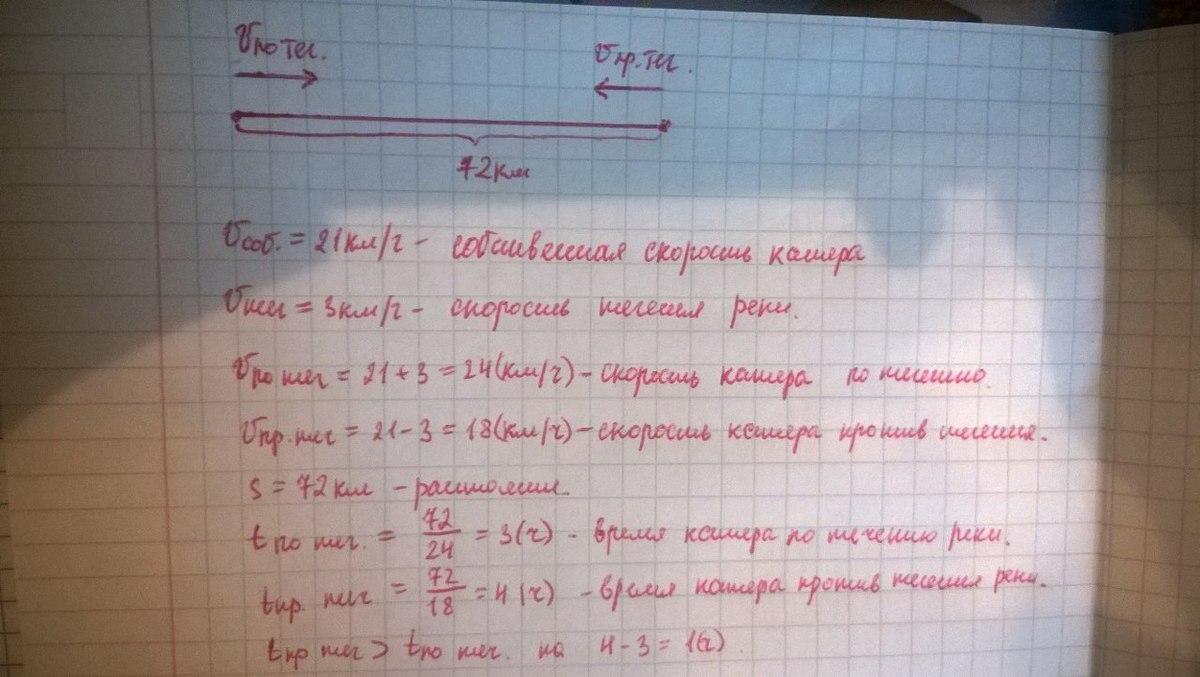 Vпо теч. Vпр. теч.
72 км
Vсоб. = 21 км/ч - собственная скорость катера
Vтеч = 3 км/ч - скорость течения реки.
Vпо теч = 21 + 3 = 24 (км/ч) - скорость катера по течению.
Vпр. теч = 21 - 3 = 18 (км/ч) - скорость катера против течения.
S = 72 км - расстояние.
tпо теч. = 72/24 = 3 (ч) - время катера по течению реки.
tпр. теч = 72/18 = 4 (ч) - время катера против течения реки.
tпр теч > tпо теч. на 4 - 3 = 1(ч).